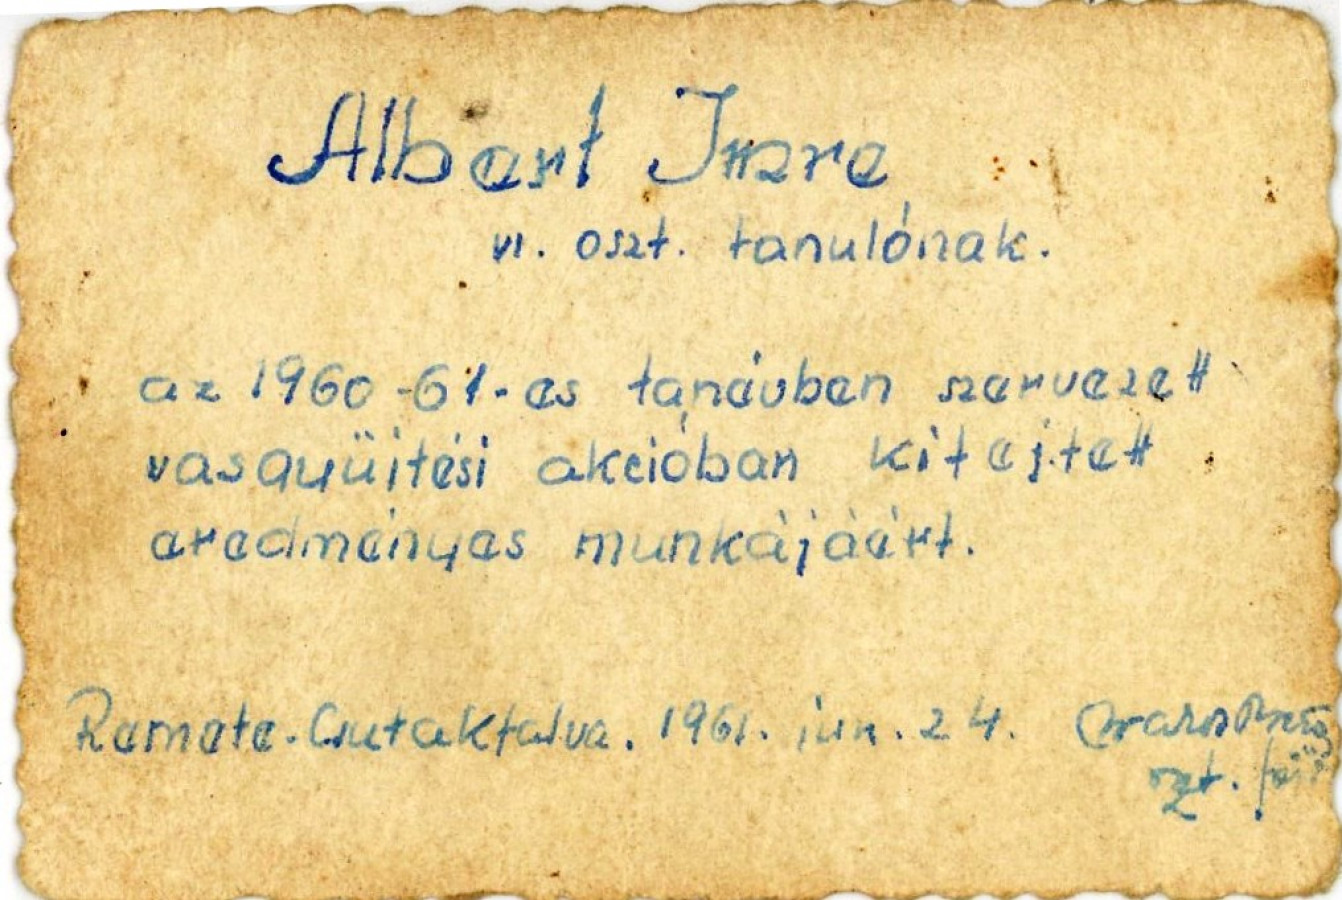 Albert Imre
VI. oszt. tanulónak.
az 1960-61-es tanévben szervezett
vasgyüjtési akcióban kifejtett
eredményes munkájáért.
Remete-Csutakfalva. 1961. jun. 24.
oszt. főn.